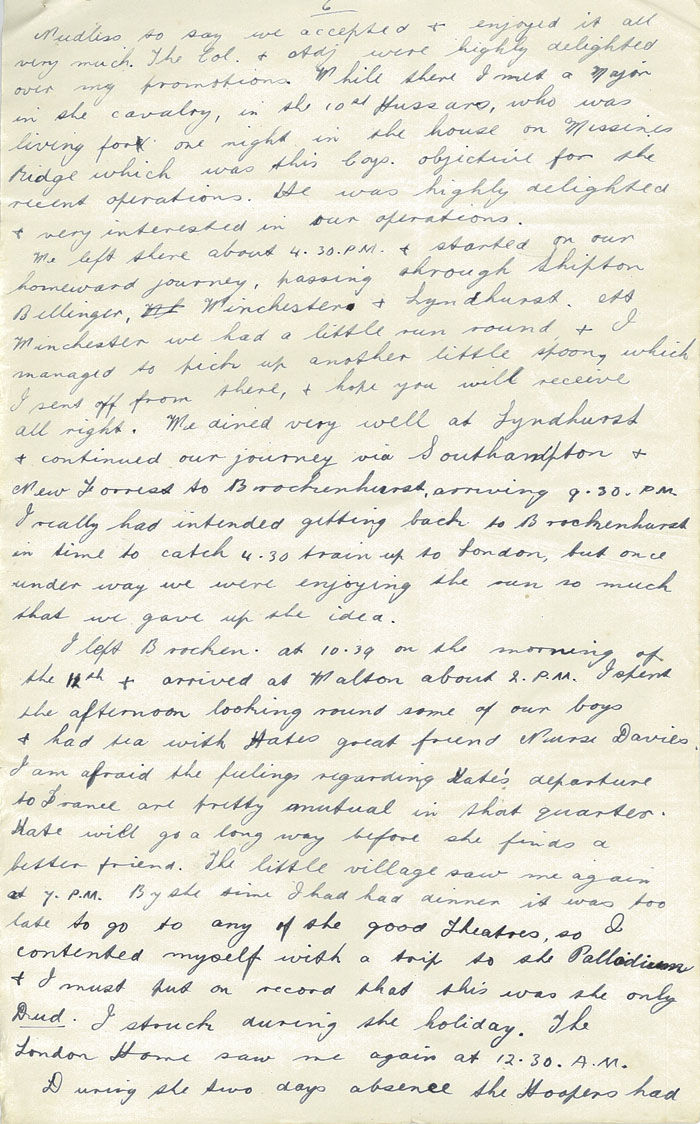 6
Nudliss to say we accepted & enjoyed it all
very much. The Col. & Adj were highly delighted
over my promotions. While there I met a Major
in the cavalry, in the 10th Hussars, who was
living for one night in the house on Missines
Ridge which was this Coys. objective for the
recent operations. He was highly delighted
& very interested in our operations.
We left there about 4.30.P.M. & started on our
homeward journey, passing through Shipton
Bellinger, Winchester & Lyndhurst. At
Winchester we had a little run round & I
managed to pick up another little spoon, which
I sent off from there, & hope you will receive
all right. We dined very well at Lyndhurst
& continued our journey via Southampton &
New Forrest to Brockenhurst, arriving 9.30. P.M.
I really had intended getting back to Brockenhurst
in time to catch 4.30 train up to London, but once
under way we were enjoying the run so much
that we gave up the idea.
I left Brocken. at 10.39 on the morning of
the 11th & arrived at Walton about 2. P.M. I spent
the afternoon looking round some of our boys
& had tea with Kates great friend Nurse Davies.
I am afraid the feelings regarding Kate's departure
to France are pretty mutual in that quarter.
Kate will go a long way before she finds a
better friend. The little village saw me again
at 7. P.M. By the time I had had dinner it was too
late to go to any of the good Theatres, so I
contented myself with a trip to the Palladium
& I must put on record that this was the only
Dud. I struck during the holiday. The
London Home saw me again at 12.30. A.M.
During the two days absence the Hoopers had